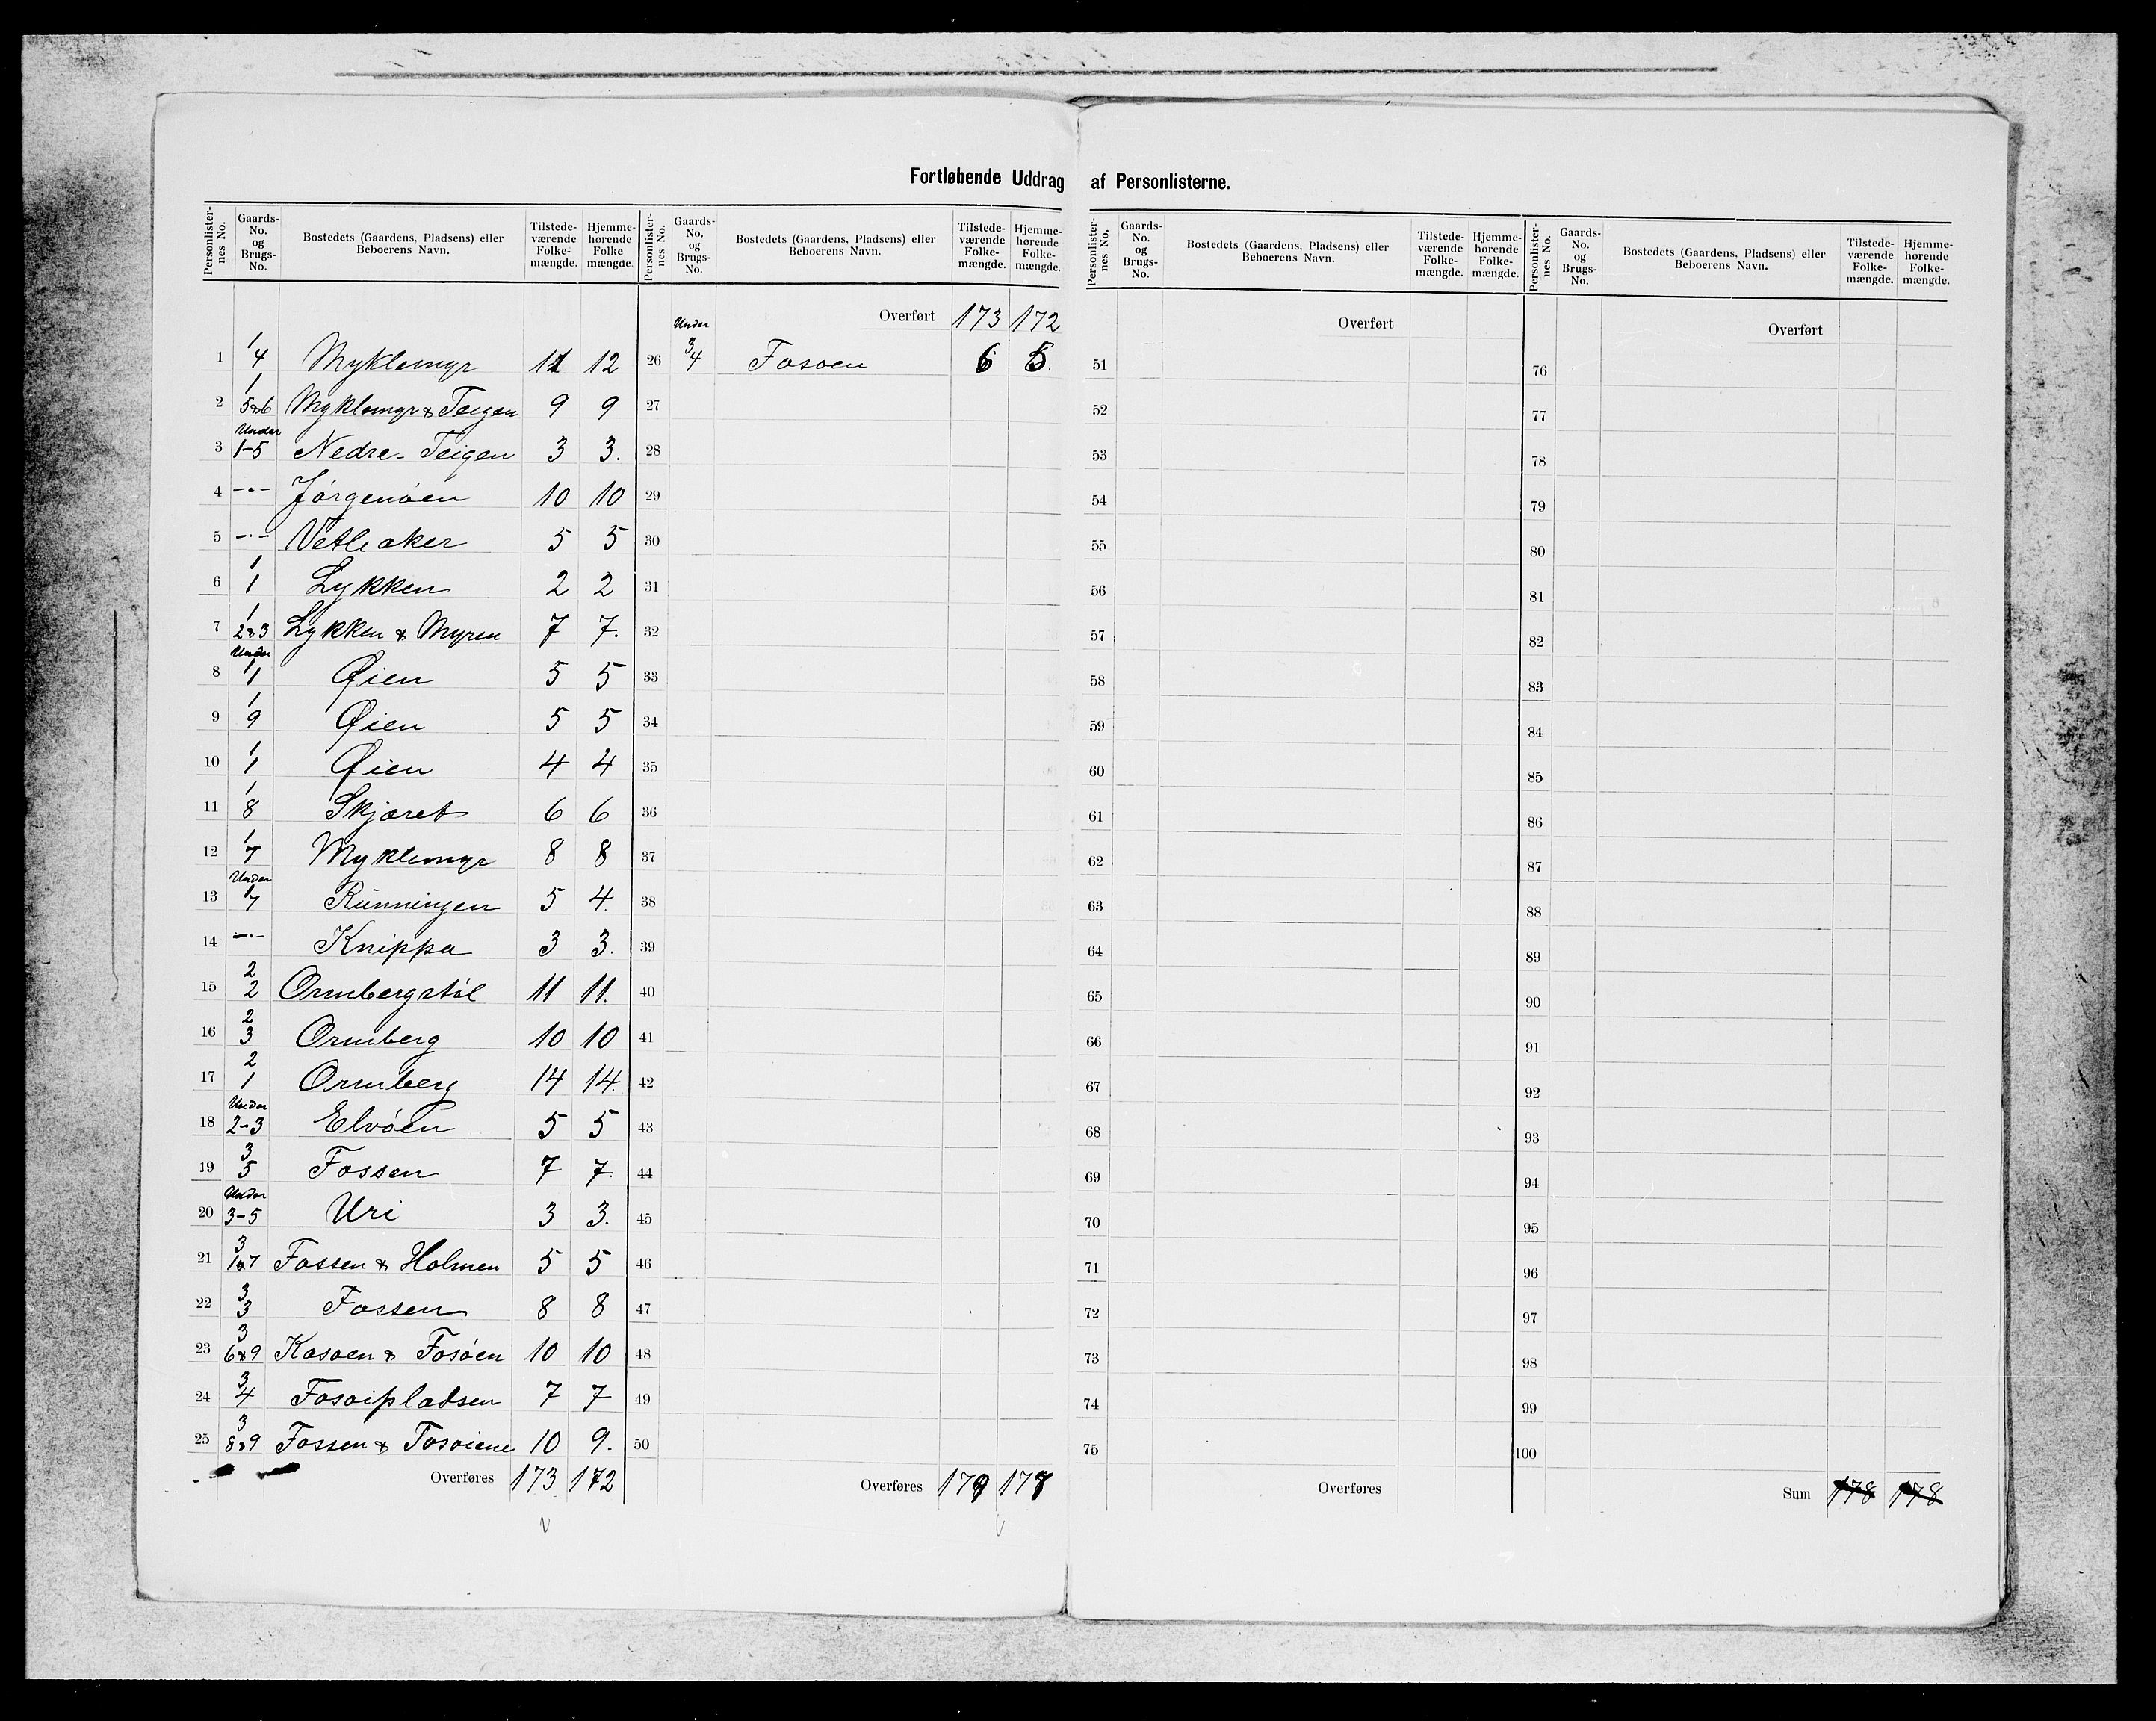 Fortløbende Uddrag af Personlisterne.
Personlisternes No. | Gaards-No. og Brugs-No. | Bostedets (Gaardens, Pladsens) eller Beboerens Navn. | Tilstedeværende Folkemængde. | Hjemmehørende Folkemængde.
1 | 1 4 | Myklemyr | 11 | 12
2 | 1 5&6 | Myklemyr & Teigen | 9 | 9
3 | Under 1-5 | Nedre-Teigen | 3 | 3.
4 | -"- | Jørgenøen | 10 | 10
5 | -"- | Vetleaker | 5 | 5
6 | 1 1 | Lykken | 2 | 2
7 | 1 2&3 | Lykken & Myren | 7 | 7.
8 | Under 1 1 | Øien | 5 | 5
9 | 1 9 | Øien | 5 | 5
10 | 1 1 | Øien | 4 | 4
11 | 1 8 | Skjæret | 6 | 6
12 | 1 7 | Myklemyr | 8 | 8
13 | Under 1 7 | Runningen | 5 | 4.
14 | -"- | Knippa | 3 | 3.
15 | 2 2 | Ormbergstøl | 11 | 11.
16 | 2 3 | Ormberg | 10 | 10
17 | 2 1 | Ormberg | 14 | 14.
18 | Under 2-3 | Elvøen | 5 | 5
19 | 3 5 | Fossen | 7 | 7.
20 | Under 3-5 | Uri | 3 | 3.
21 | 3 1&7 | Fossen & Holmen | 5 | 5
22 | 3 3 | Fossen | 8 | 8
23 | 3 6&9 | Kasoen & Fosøen | 10 | 10
24 | 3 4 | Fosøipladsen | 7 | 7
25 | 3 8&9 | Fossen & Fosøiene | 10 | 9.
Overføres 173 172
Personlisternes No. | Gaards-No. og Brugs-No. | Bostedets (Gaardens, Pladsens) eller Beboerens Navn. | Tilstedeværende Folkemængde. | Hjemmehørende Folkemængde.
Overført 173 172
26 | Under 3 4 | Fosøen | 6 | 5.
27
28
29
30
31
32
33
34
35
36
37
38
39
40
41
42
43
44
45
46
47
48
49
50
Overføres 179 177
Personlisternes No. | Gaards-No. og Brugs-No. | Bostedets (Gaardens, Pladsens) eller Beboerens Navn. | Tilstedeværende Folkemængde. | Hjemmehørende Folkemængde.
Overført
51
52
53
54
55
56
57
58
59
60
61
62
63
64
65
66
67
68
69
70
71
72
73
74
75
Overføres
Personlisternes No. | Gaards-No. og Brugs-No. | Bostedets (Gaardens, Pladsens) eller Beboerens Navn. | Tilstedeværende Folkemængde. | Hjemmehørende Folkemængde.
Overført
76
77
78
79
80
81
82
83
84
85
86
87
88
89
90
91
92
93
94
95
96
97
98
99
100
Sum 178 178